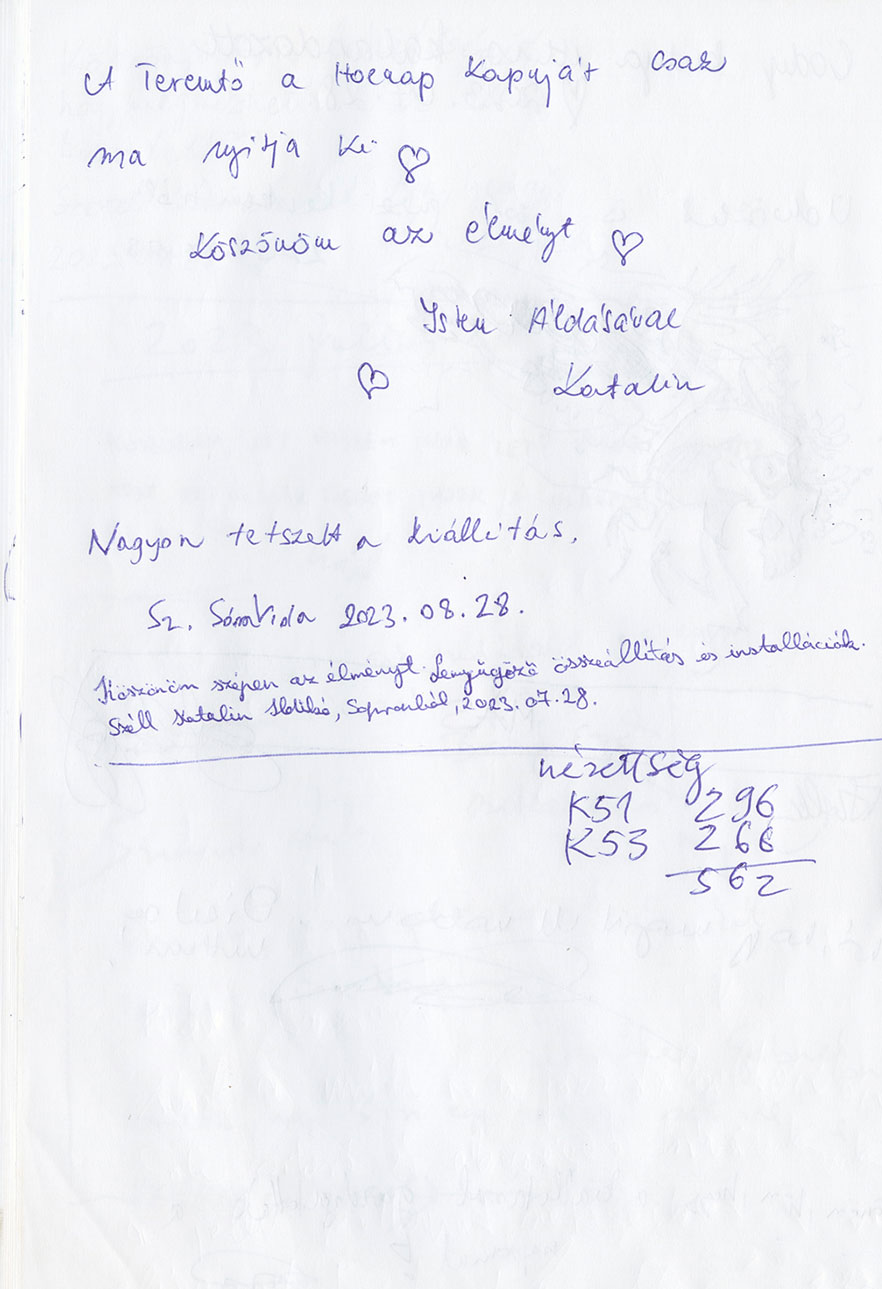 A Teremtő a Holnap Kapuját csak
ma nyitja ki
Köszönöm az élményt
Isten Áldásával
Katalin
Nagyon tetszett a kiállítás.
Sz. 2023.08.28.
Köszönöm szépen az élményt. Lenyűgöző összeállítás és installációk.
Széll Katalin Ildikó, Sopronból, 2023.07.28.
nézettség
K51 296
K53 266
562